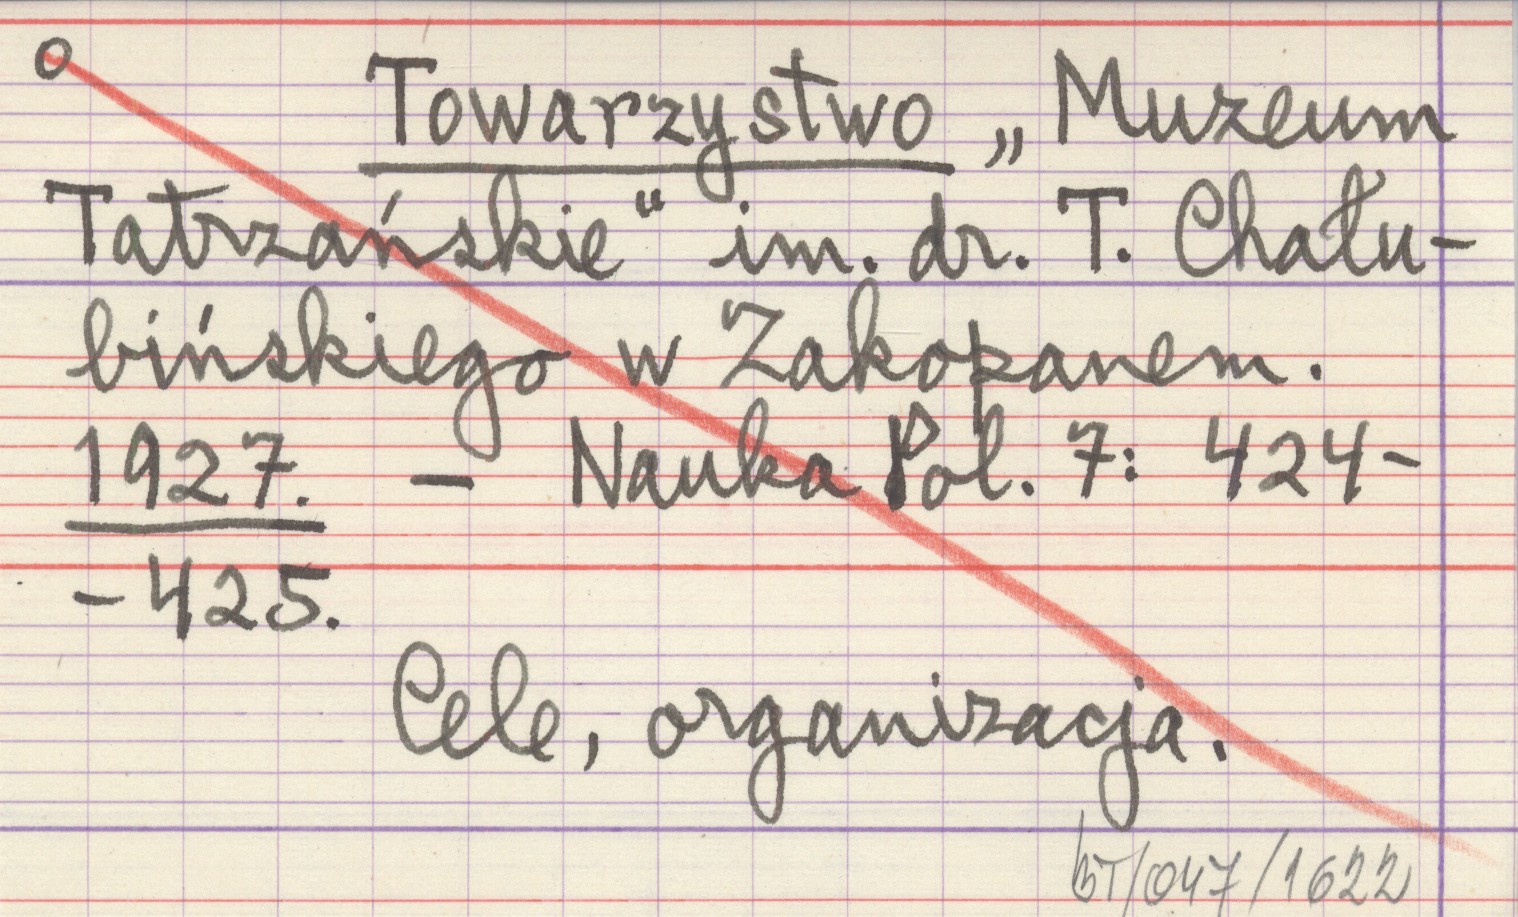 Towarzystwo „Muzeum
Tatrzańskie" im. dr. T. Chału-
bińskiego w Zakopanem.
1927. — Nauka Pol. 7: 424-
-425.
Cele, organizacja.
BT/047/1622